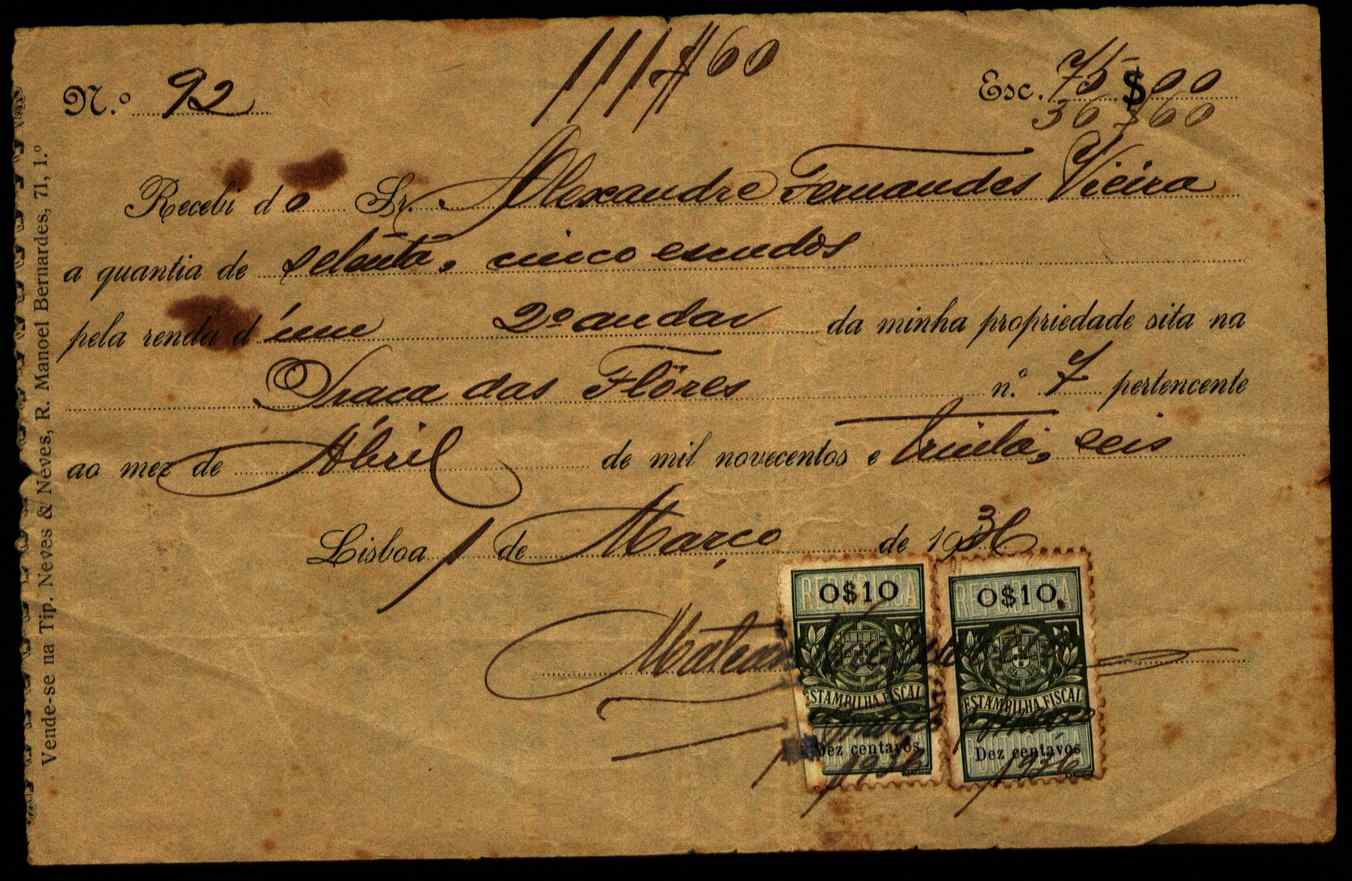 111$60
N.º 92 Esc. 75$00
36$60
Recebi do Sr. Alexandre Fernandes Vieira
a quantia de setenta, cinco escudos
pela renda d'um 2º andar da minha propriedade sita na
Praça das Flôres n.º 7 pertencente
ao mez de Abril de mil novecentos e trinta, seis
Lisboa 1 de Março de 1936
0$10 0$10
ESTAMPILHA FISCAL ESTAMPILHA FISCAL
Dez centavos Dez centavos
1936 1936
Vende-se na Tip. Neves & Neves, R. Manoel Bernardes, 71, 1.º